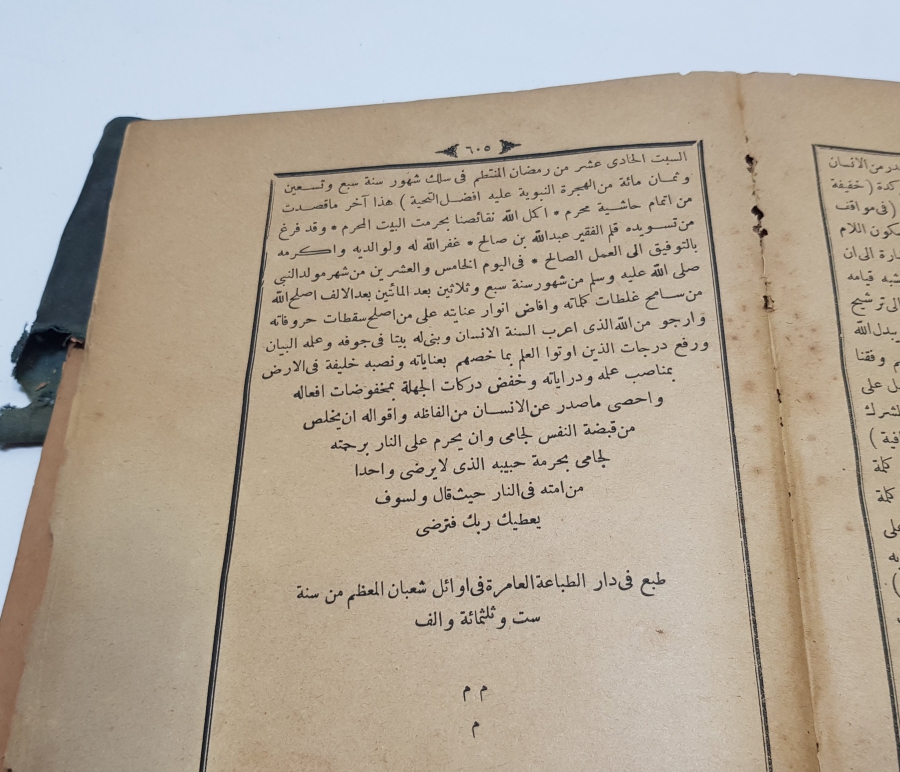 ٦٠٥
السبت الحادى عشر من رمضان المنتظم فى سلك شهور سنة سبع وتسعين
وثمان مائة من الهجرة النبوية عليه افضل التحية ) هذا آخر ماقصدت
من اتمام حاشية محرم * اكمل الله نقائصنا بحرمت البيت المحرم * وقد فرغ
من تسويده قلم الفقير عبدالله بن صالح * غفرالله له ولوالديه واكرمه
بالتوفيق الى العمل الصالح * فى اليوم الخامس والعشرين من شهر مولد النبى
صلى الله عليه وسلم من شهور سنة سبع وثلاثين بعد المائتين بعد الالف اصلح الله
من سامح غلطات كلماته وافاض انوار عنايته على من اصلح سقطات حروفاته
وارجو من الله الذى اعرب السنة الانسان وبنى له بيتا فى جوفه وعلمه البيان
ورفع درجات الذين اوتوا العلم بما خصهم بعناياته ونصبه خليفة فى الارض
بمناصب عمله ودراياته وخفض دركات الجهلة بمخفوضات افعاله
واحصى ماصدر عن الانسان من الفاظه واقواله ان يخلص
من قبضة النفس لجامى وان يحرم على النار برحمته
لجامى بحرمة حبيبه الذى لايرضى واحدا
من امته فى النار حيث قال ولسوف
يعطيك ربك فترضى
طبع فى دار الطباعة العامرة فى اوائل شعبان المعظم من سنة
ست وثلثمائة والف
م م
م
در من الانسان
كدة ( خفيفة
( فى مواقف
كون اللام
ارة الى ان
شبه قيامه
لى ترشيح
يبدل الله
م وفقنا
ل على
شرك
فية )
كلمة
كلمة
على
به